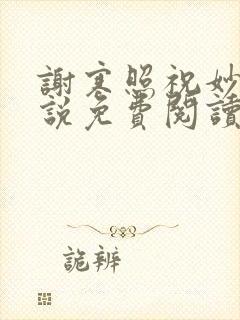 謝寒照祝妙
說免費閱讀
詭辨